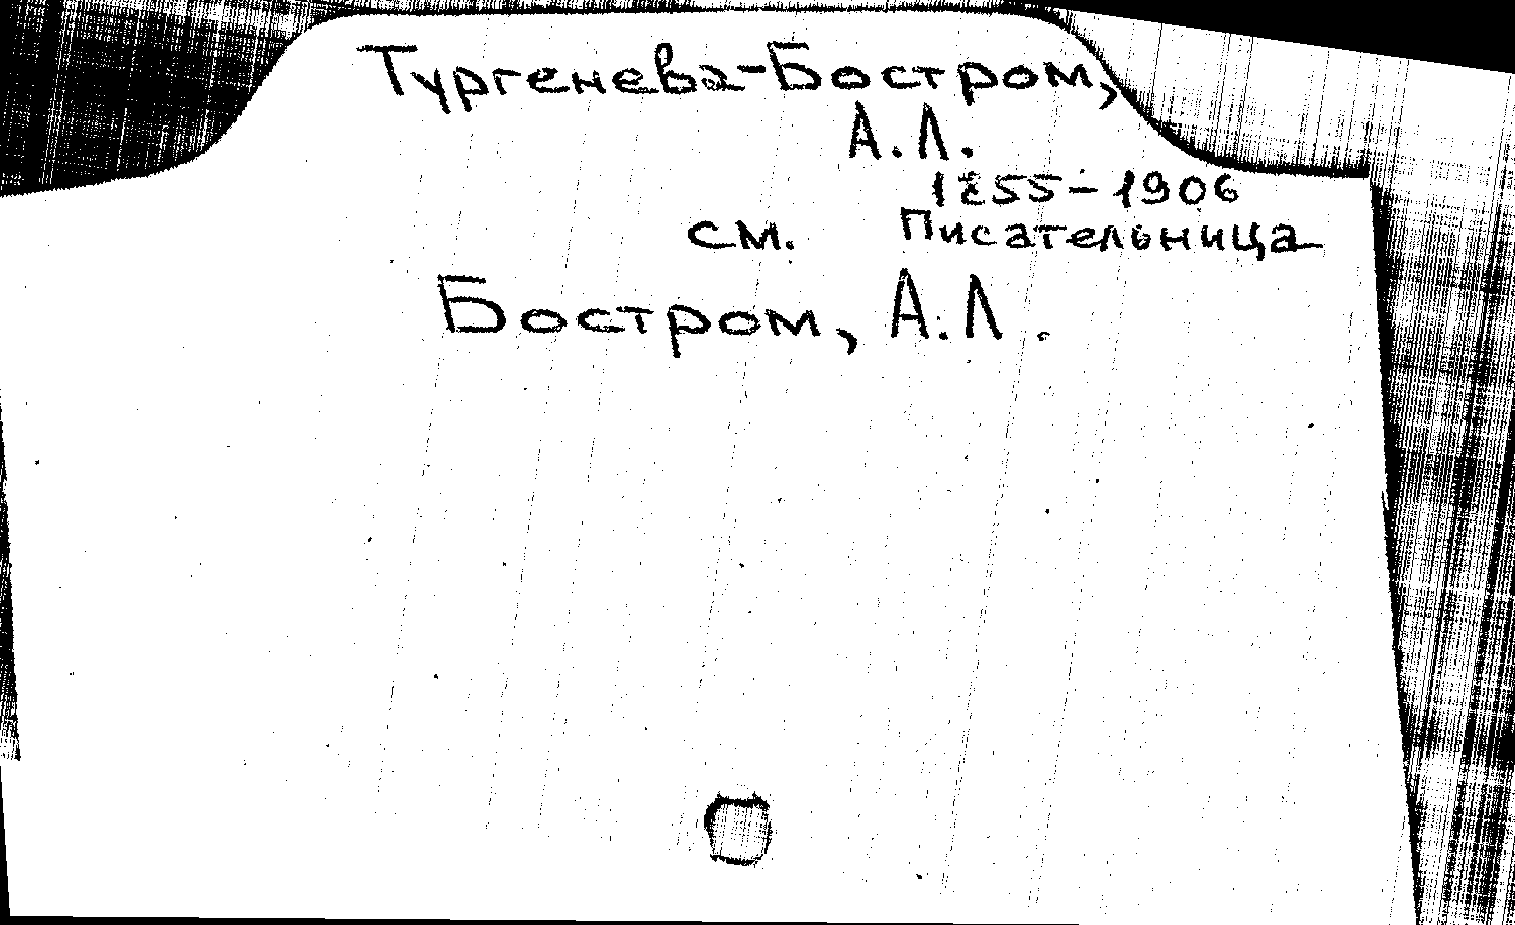 Тургенева-Бостром,
А.Л.
1855-1906
см. Писательница
Бостром, А.Л.